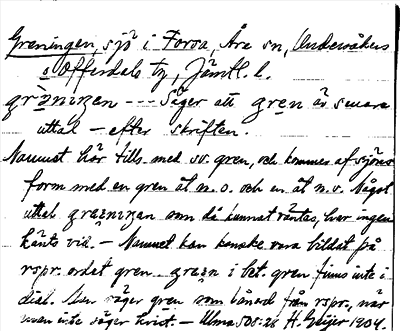 Greningen, sjö i Forsa, Åre sn, Undersåkers
o. Offerdals tg, Jämtl. l.
grèningen --- Säger att gren är senare
uttal – efter skriften.
Namnet hör tills. med sv. gren, och kommer af sjöns
form med en gren åt n.o. och en åt n.v. Något
uttal græ̀ningan som då kunnat väntas, har ingen
känts vid. – Namnet kan kanske vara bildat på
rspr. ordet gren. græin i bet. gren finns inte i
dial. Man säger gren som lånord från rspr., när
man inte säger kvist. – Ulma 505:28 H. Geijer 1904.